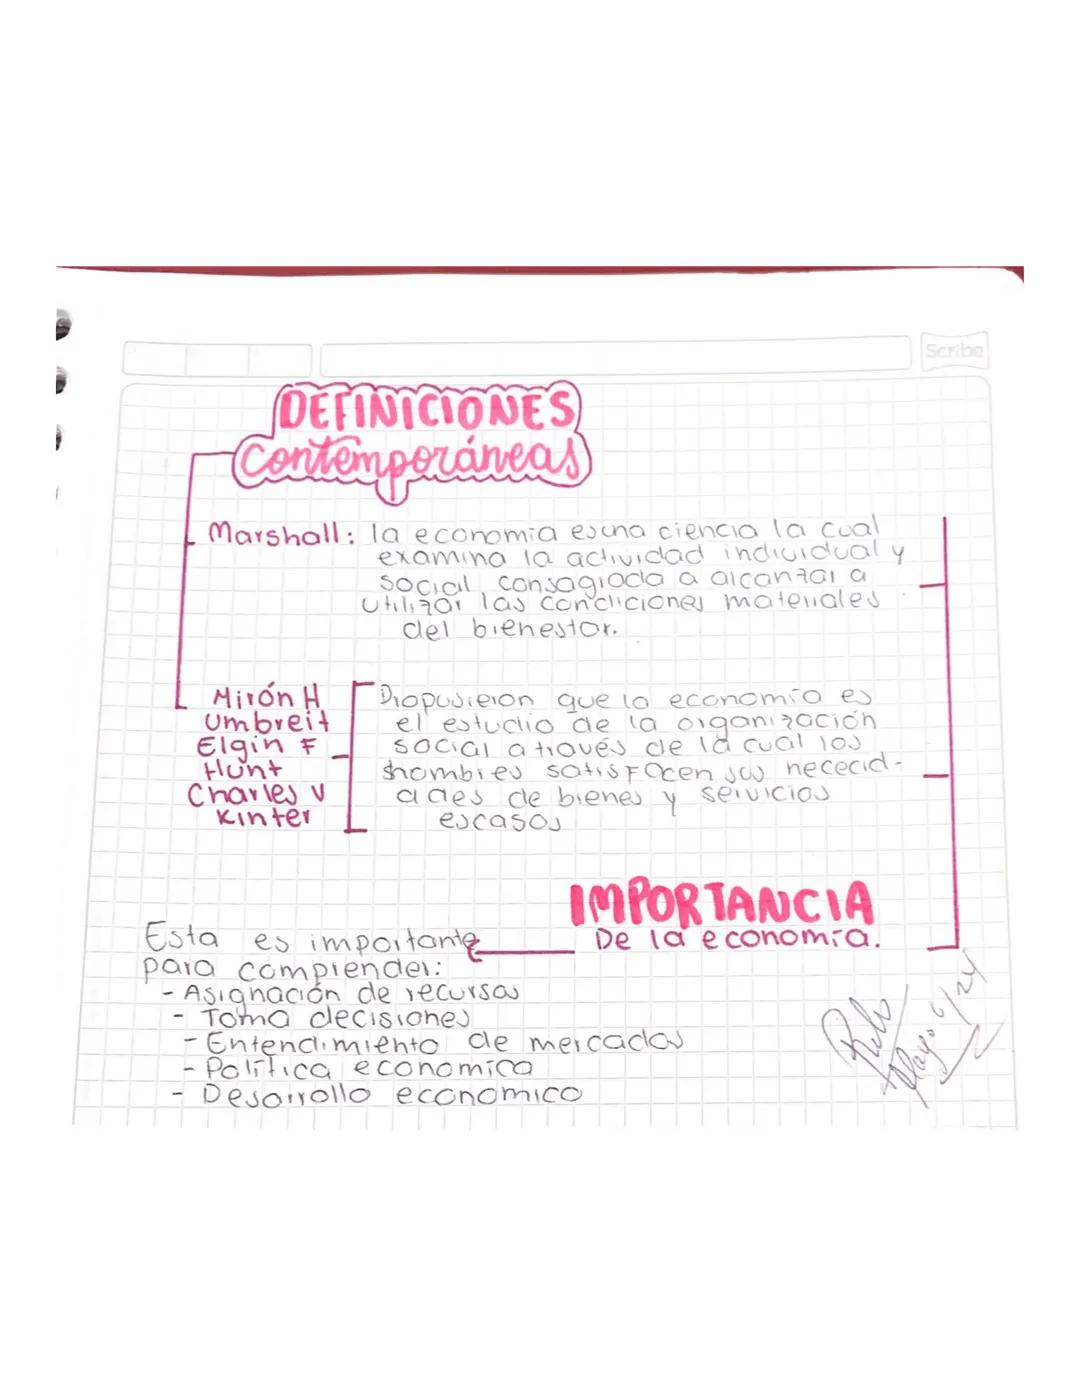 Scribe
DEFINICIONES
Contemporáneas
Marshall: la economía es una ciencia la cual
examina la actividad individual y
social consagrada a alcanzar a
utilizar las condiciones materiales
del bienestar.
Mirón H
Umbreit
Elgin F
Hunt
Charles V
Kinter
Propusieron que la economía es
el estudio de la organización
social a través de la cual los
hombres satisfacen sus nececid-
ades de bienes y servicios
escasos
IMPORTANCIA
De la economía.
Esta es importante
para comprender:
- Asignación de recursos
- Toma decisiones
- Entendimiento de mercados
- Política economica
- Desarrollo economico
Mayo 6/24